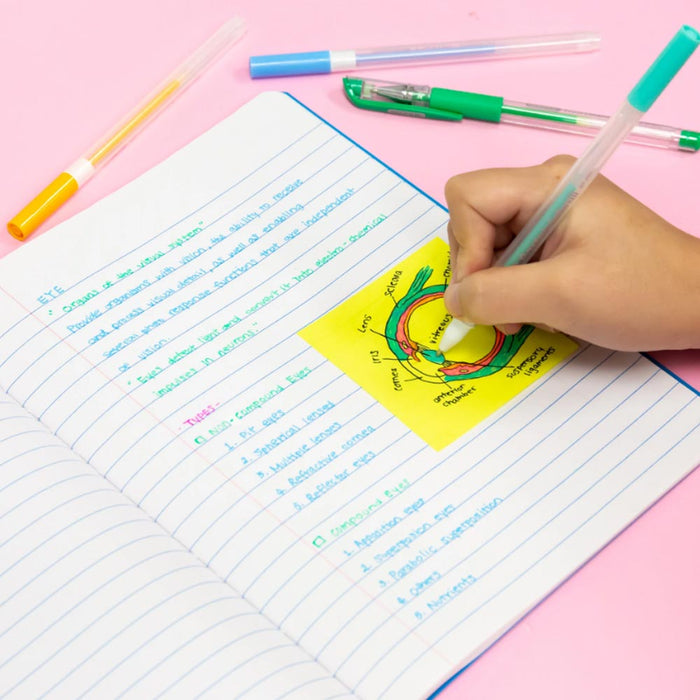 EYE
" Organs of the visual system "
Provide organisms with vision, the ability to receive
and process visual detail, as well as enabling
several photo response functions that are independent
of vision.
" Eyes detect light and convert it into electro-chemical
impulses in neurons "
- TYPES -
Non-Compound Eyes
1. Pit eyes
2. Spherical lensed
3. Multiple lenses
4. Refractive cornea
5. Reflector eyes
Compound Eyes
1. Apposition eyes
2. Superposition eyes
3. Parabolic superposition
4. Others
5. Nutrients
Sclera
Lens
Iris
Cornea
anterior
chamber
suspensory
ligaments
vitreous